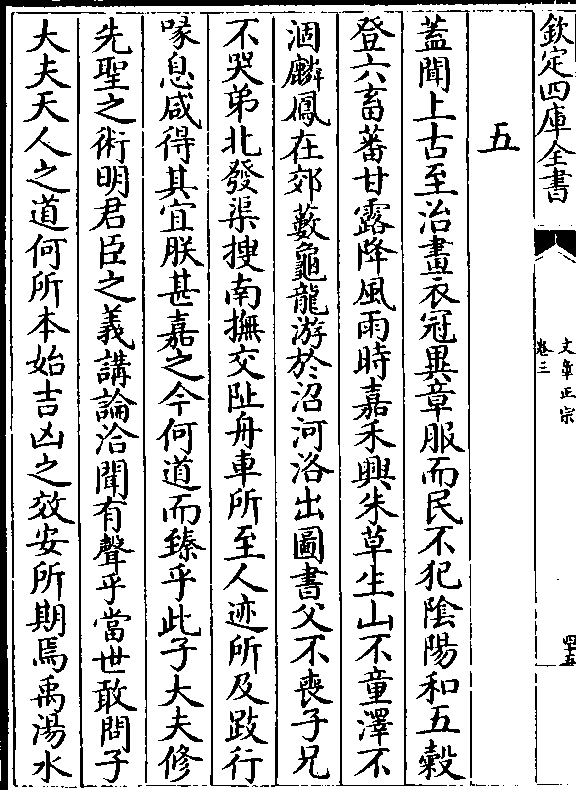 欽定四庫全書
文章正宗
卷三
四十五
五
蓋聞上古至治畫衣冠異章服而民不犯陰陽和五穀
登六畜蕃甘露降風雨時嘉禾興朱草生山不童澤不
涸麟鳳在郊藪龜龍游於沼河洛出圖書父不喪子兄
不哭弟北發渠搜南撫交阯舟車所至人迹所及跂行
喙息咸得其宜朕甚嘉之今何道而臻乎此子大夫修
先聖之術明君臣之義講論洽聞有聲乎當世敢問子
大夫天人之道何所本始吉凶之效安所期焉禹湯水